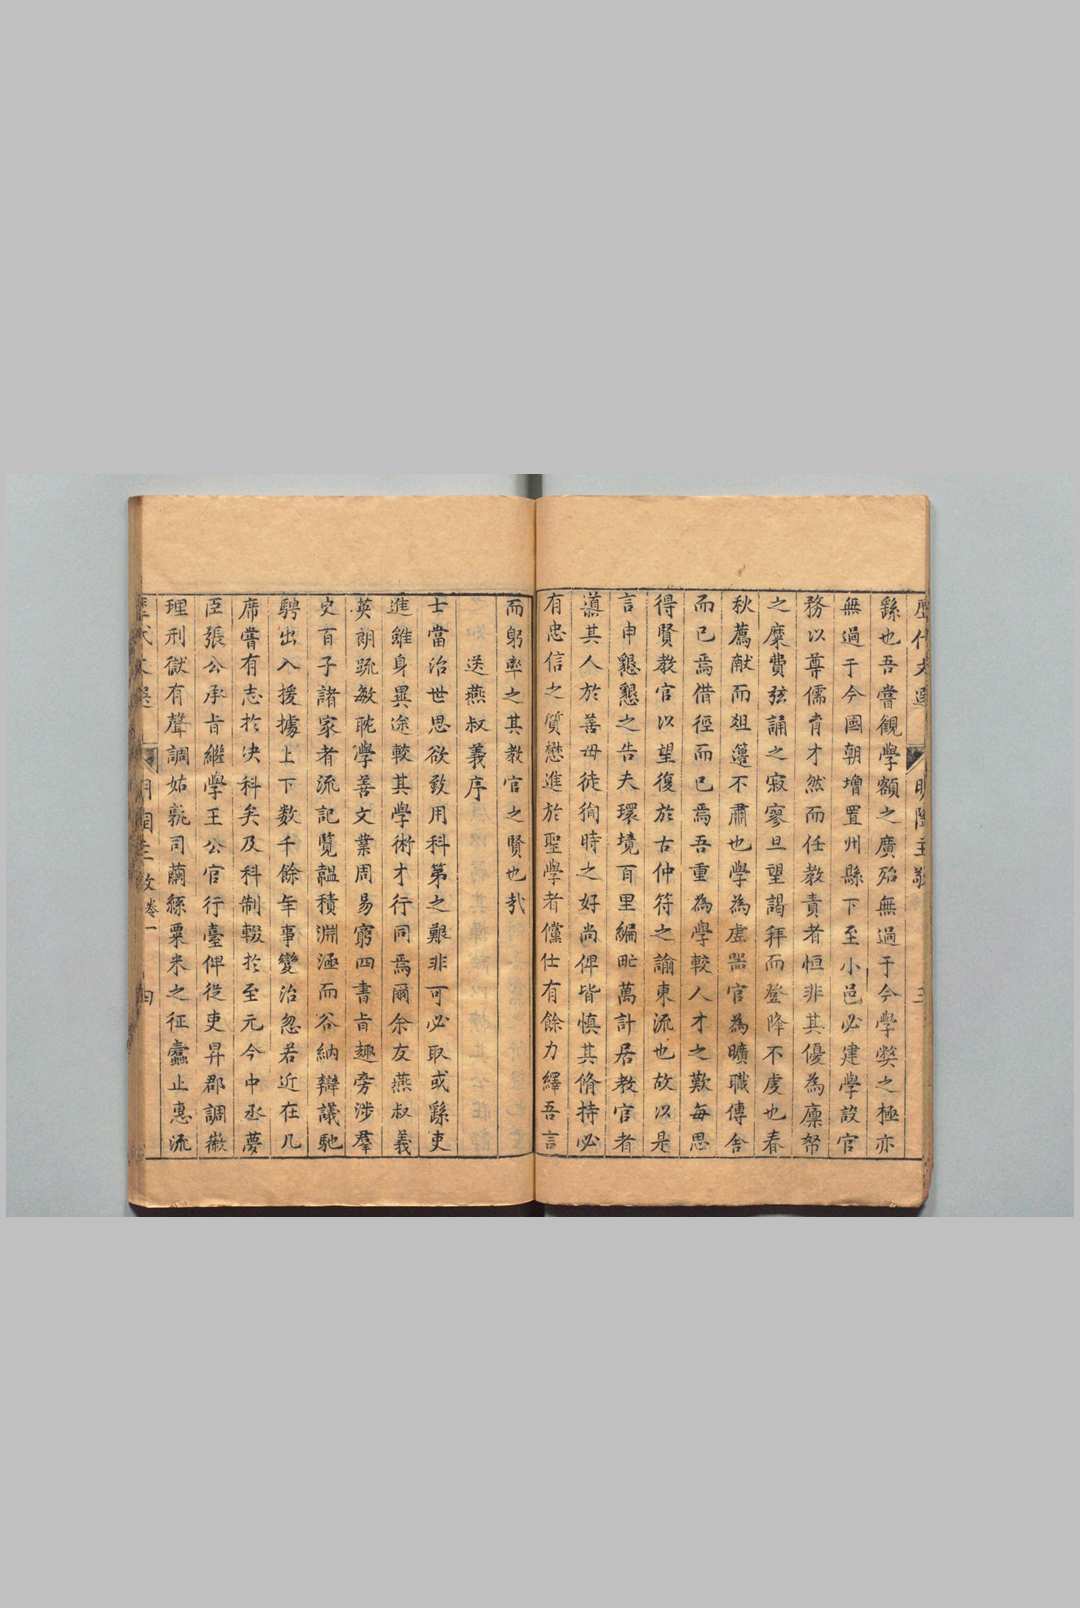 繇也吾嘗觀學額之廣殆無過于今學獘之極亦
無過于今國朝增置州縣下至小邑必建學設官
務以尊儒育才然而任教責者恒非其優為廩帑
之糜費弦誦之寂寥旦望謁拜而登降不虔也春
秋薦献而爼籩不肅也學為虗噐官為曠職傳舍
而已焉借徑而已焉吾重為學較人才之歎每思
得賢教官以望復於古仲符之諭東流也故以是
言申懇懇之告夫環境百里編甿萬計居教官者
滇其人於善毋徒徇時之好尚俾皆慎其脩持必
有忠信之質懋進於聖學者儻仕有餘力繹吾言
而躬率之其教官之賢也㢤
送燕叔義序
士當治世思欲致用科第之艱非可必取或繇吏
進雖身異途較其學術才行同焉爾余友燕叔義
英朗疏敏耽學善文業周易窮四書㫖趣旁涉羣
史百子諸家者流記覽韞積淵涵而谷納辯議馳
騁出入援據上下数千餘年事變治忽若近在几
席嘗有志扵决科矣及科制輟扵至元今中丞夢
臣張公承㫖繼學王公官行臺俾從吏昇郡調徽
理刑獄有聲調姑孰司繭絲粟米之征蠧止惠流
歴代文選
明陶主敬
三
文卷一
四